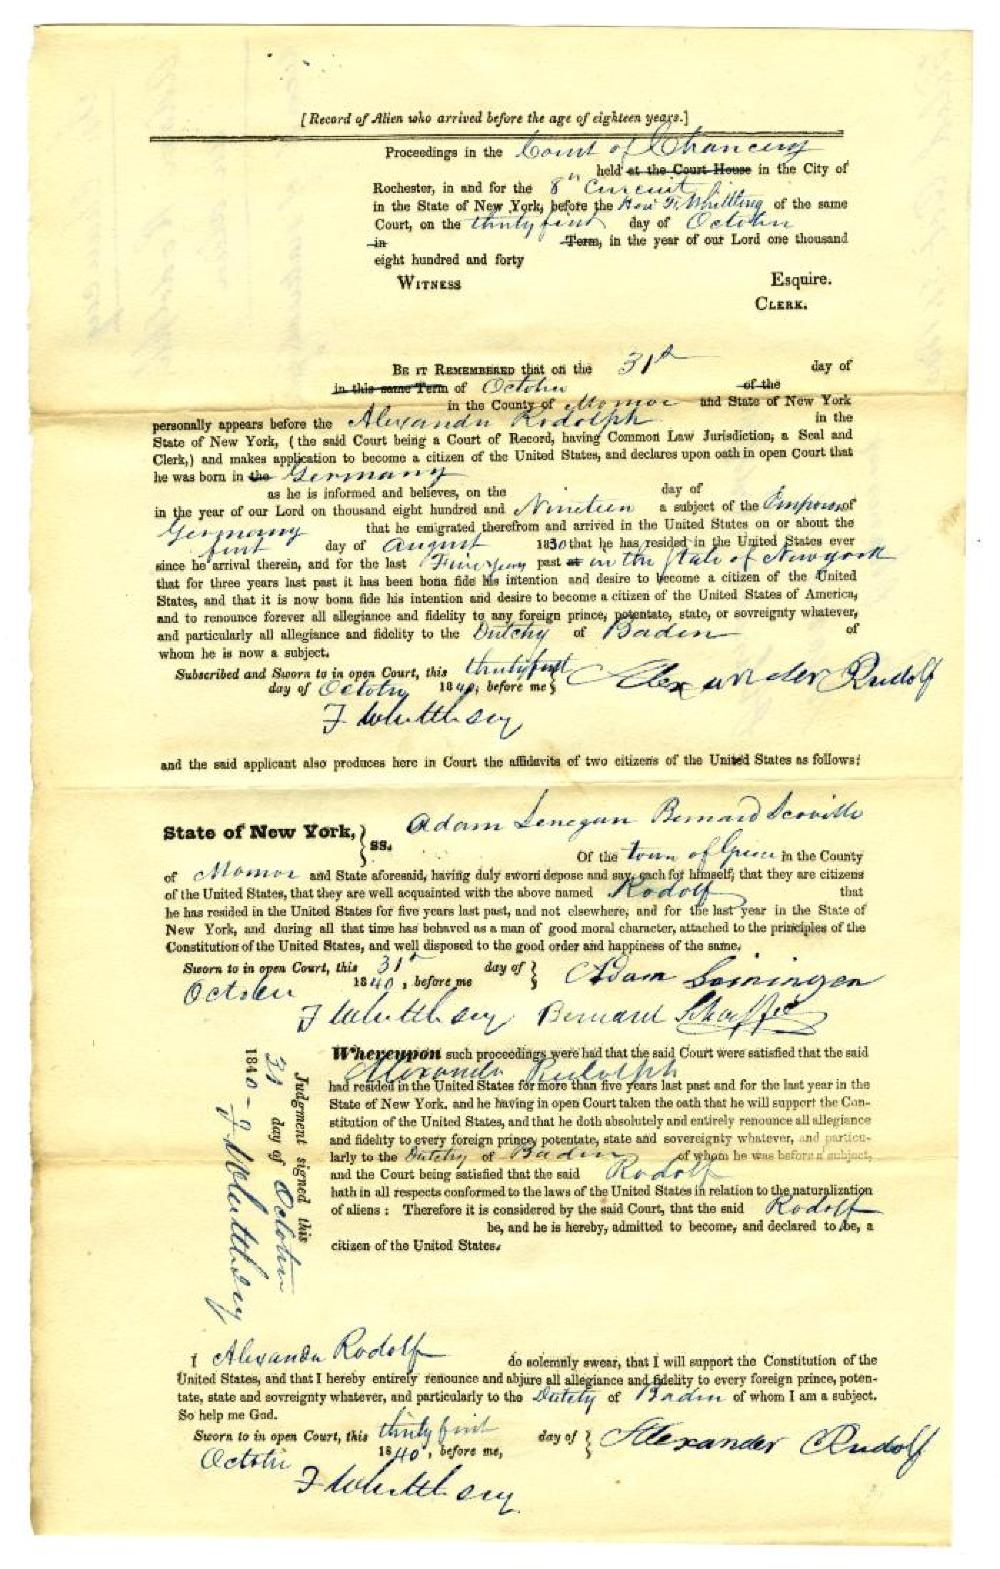 [Record of Alien who arrived before the age of eighteen years.]
Proceedings in the Court of Chancery
held at the Court House in the City of
Rochester, in and for the 8th Circuit
in the State of New York, before the Hon F. Whittlsey of the same
Court, on the thirty first day of October
in Term, in the year of our Lord one thousand
eight hundred and forty
WITNESS Esquire.
CLERK.
BE IT REMEMBERED that on the 31st day of
in this same Term of October of the
in the County of Monroe and State of New York
personally appears before the Alexander Rodolph in the
State of New York, (the said Court being a Court of Record, having Common Law Jurisdiction, a Seal and
Clerk,) and makes application to become a citizen of the United States, and declares upon oath in open Court that
he was born in the Germany
as he is informed and believes, on the day of
in the year of our Lord on thousand eight hundred and Nineteen a subject of the Emperor of
Germany that he emigrated therefrom and arrived in the United States on or about the
first day of August 1830 that he has resided in the United States ever
since he arrival therein, and for the last Five years past at in the State of New york
that for three years last past it has been bona fide his intention and desire to become a citizen of the United
States, and that it is now bona fide his intention and desire to become a citizen of the United States of America,
and to renounce forever all allegiance and fidelity to any foreign prince, potentate, state, or sovreignty whatever,
and particularly all allegiance and fidelity to the Dutchy of Baden of
whom he is now a subject.
Subscribed and Sworn to in open Court, this thirty first
day of October 1840, before me Alexander Rudolf
F Whittlesey
and the said applicant also produces here in Court the affidavits of two citizens of the United States as follows:
State of New York, ss. Adam Lenegan Bernard Scoville
Of the town of Greece in the County
of Monroe and State aforesaid, having duly sworn depose and say, each for himself, that they are citizens
of the United States, that they are well acquainted with the above named Rodolf that
he has resided in the United States for five years last past, and not elsewhere, and for the last year in the State of
New York, and during all that time has behaved as a man of good moral character, attached to the principles of the
Constitution of the United States, and well disposed to the good order and happiness of the same.
Sworn to in open Court, this 31st day of
October 1840, before me Adam Leiningen
F Whittlesey Bernard
Whereupon such proceedings were had that the said Court were satisfied that the said
Alexander Rudolph
had resided in the United States for more than five years last past and for the last year in the
State of New York, and he having in open Court taken the oath that he will support the Con-
stitution of the United States, and that he doth absolutely and entirely renounce all allegiance
and fidelity to every foreign prince, potentate, state and sovereignty whatever, and particu-
larly to the Dutchy of Baden of whom he was before a subject,
and the Court being satisfied that the said Rodolf
hath in all respects conformed to the laws of the United States in relation to the naturalization
of aliens : Therefore it is considered by the said Court, that the said Rodolf
be, and he is hereby, admitted to become, and declared to be, a
citizen of the United States.
Judgment signed this
31 day of October
1840
F Whittlesey
I Alexander Rodolf do solemnly swear, that I will support the Constitution of the
United States, and that I hereby entirely renounce and abjure all allegiance and fidelity to every foreign prince, poten-
tate, state and sovreignty whatever, and particularly to the Dutchy of Baden of whom I am a subject.
So help me God.
Sworn to in open Court, this thirty first day of
October 1840, before me, Alexander Rudolf
F Whittlesey